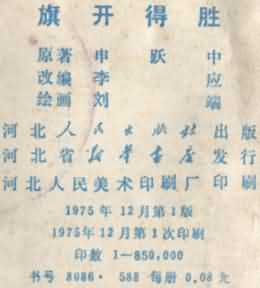 旗开得胜
原著 申跃中
改编 李应
绘画 刘端
河北人民出版社出版
河北省新华书店发行
河北人民美术印刷厂印刷
1975年12月第1版
1975年12月第1次印刷
印数 1—850,000
书号 8086·588 每册 0.08元